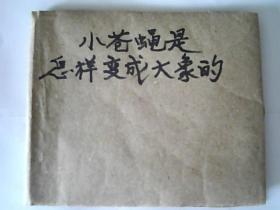 小苍蝇是
怎样变成大象的